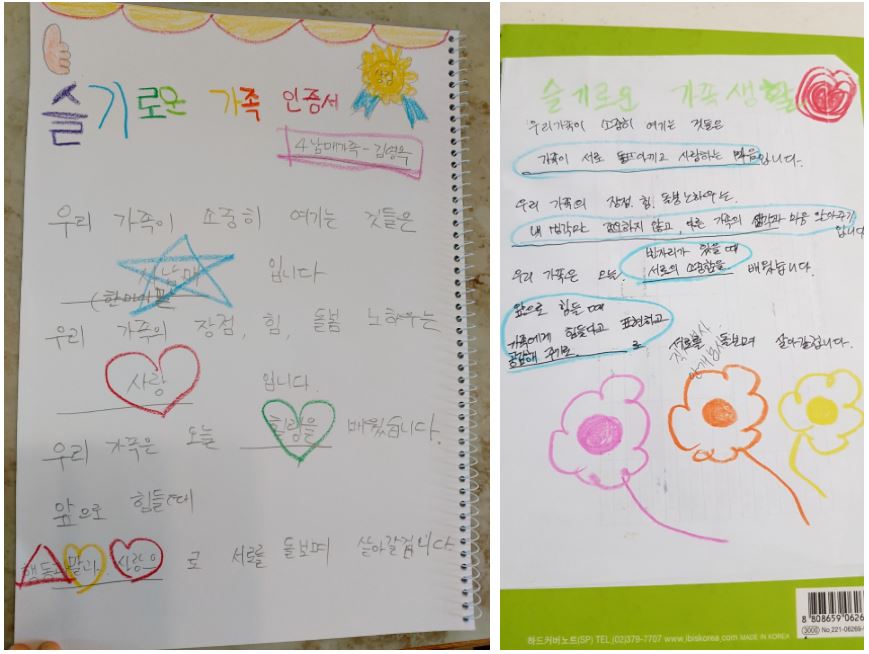 슬기로운 가족 인증서
4남매가족-김영옥
우리 가족이 소중히 여기는 것들은
사남매 입니다
우리 가족의 장점, 힘, 돌봄 노하우는
사랑 입니다.
우리 가족은 오늘 협력을 배웠습니다.
앞으로 힘들때
행동과 말과 사랑으 로 서로를 돌보며 살아갈겁니다
슬기로운 가족생활
우리가족이 소중히 여기는 것들은
가족이 서로 아끼고 사랑하는 마음입니다.
우리 가족의 장점, 힘, 돌봄노하우는.
내 생각만 강요하지 않고, 다른 가족의 생각과 마음 알아주기
입니다
빈자리가 있을때
우리 가족은 오늘 서로의 소중함을 배웠습니다.
앞으로 힘들 때
가족에게 힘들다고 표현하고
공감해 주기로 로 서로를 돌보며 살아갈겁니다.
하드커버노트(SP) TEL (02)379-7707 www.ibiskorea.com MADE IN KOREA
8 808659 0626
3000 No.221-06269-